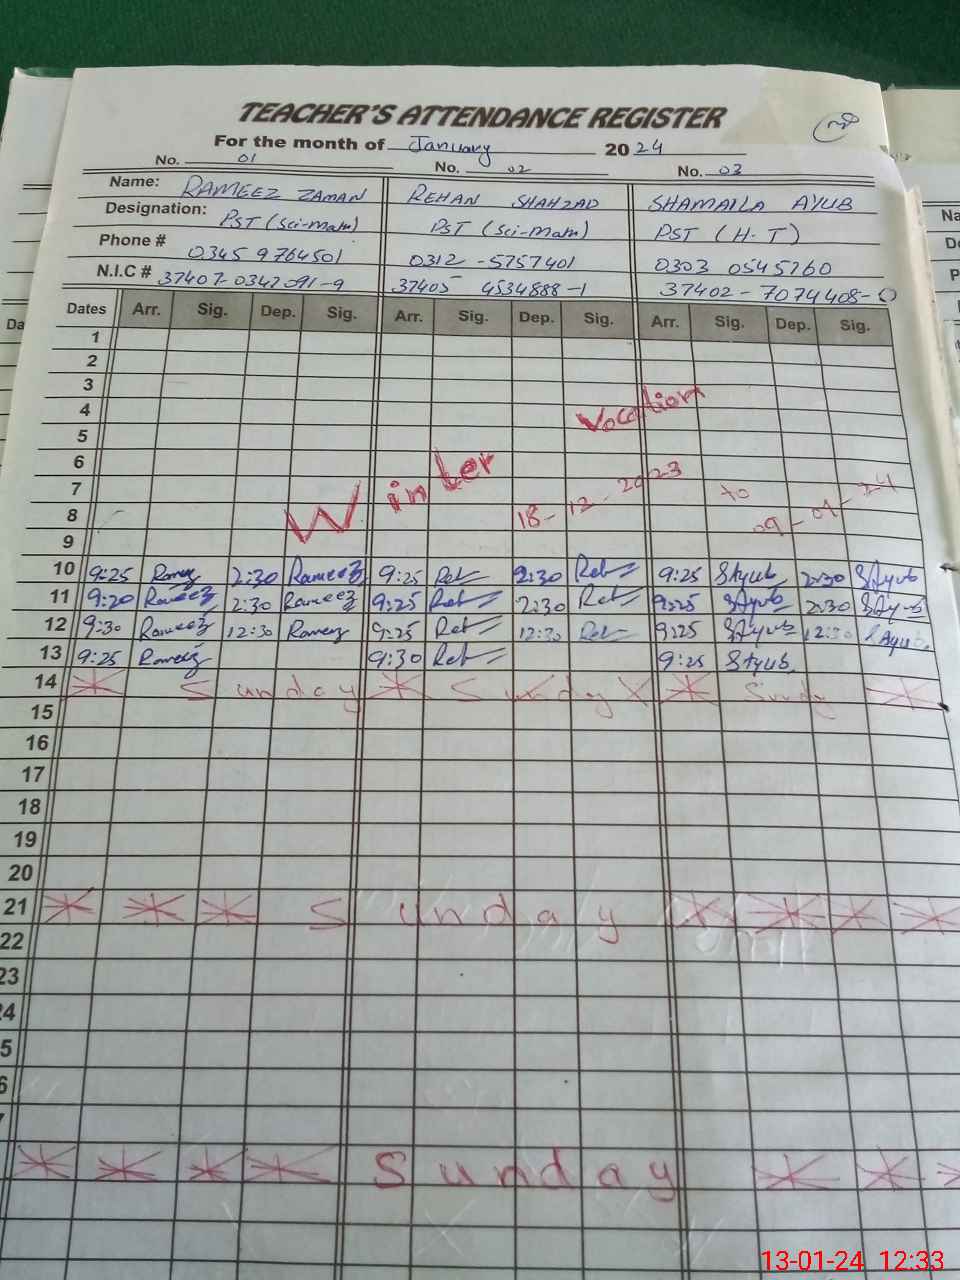 TEACHER'S ATTENDANCE REGISTER
For the month of January 2024
No. 01 No. 02 No. 03
Name: RAMEEZ ZAMAN REHAN SHAHZAD SHAMAILA AYUB
Designation: PST (Sci-Math) PST (Sci-Math) PST (H.T)
Phone # 0345 9764501 0312-5757401 0303 0545760
N.I.C # 37405 4534888-1 37402-7074408-0
Dates Arr. Sig. Dep. Sig. Arr. Sig. Dep. Sig. Arr. Sig. Dep. Sig.
1
2
3
4 Vocation
5
6
7 Winter
8 18-12-2023 to 09-01-24
9
10 9:25 Rameez 2:30 Rameez 9:25 Reh 2:30 Reh 9:25 SAyub 2:30 SAyub
11 9:20 Rameez 2:30 Rameez 9:25 Reh 2:30 Reh 9:25 SAyub 2:30 SAyub
12 9:30 Rameez 12:30 Rameez 9:25 Reh 12:30 Reh 9:25 SAyub 12:30 SAyub
13 9:25 Rameez 9:30 Reh 9:25 SAyub
14 Sunday Sunday Sundy
15
16
17
18
19
20
21 Sunday
22
23
24
5
6
7
Sunday
13-01-24 12:33